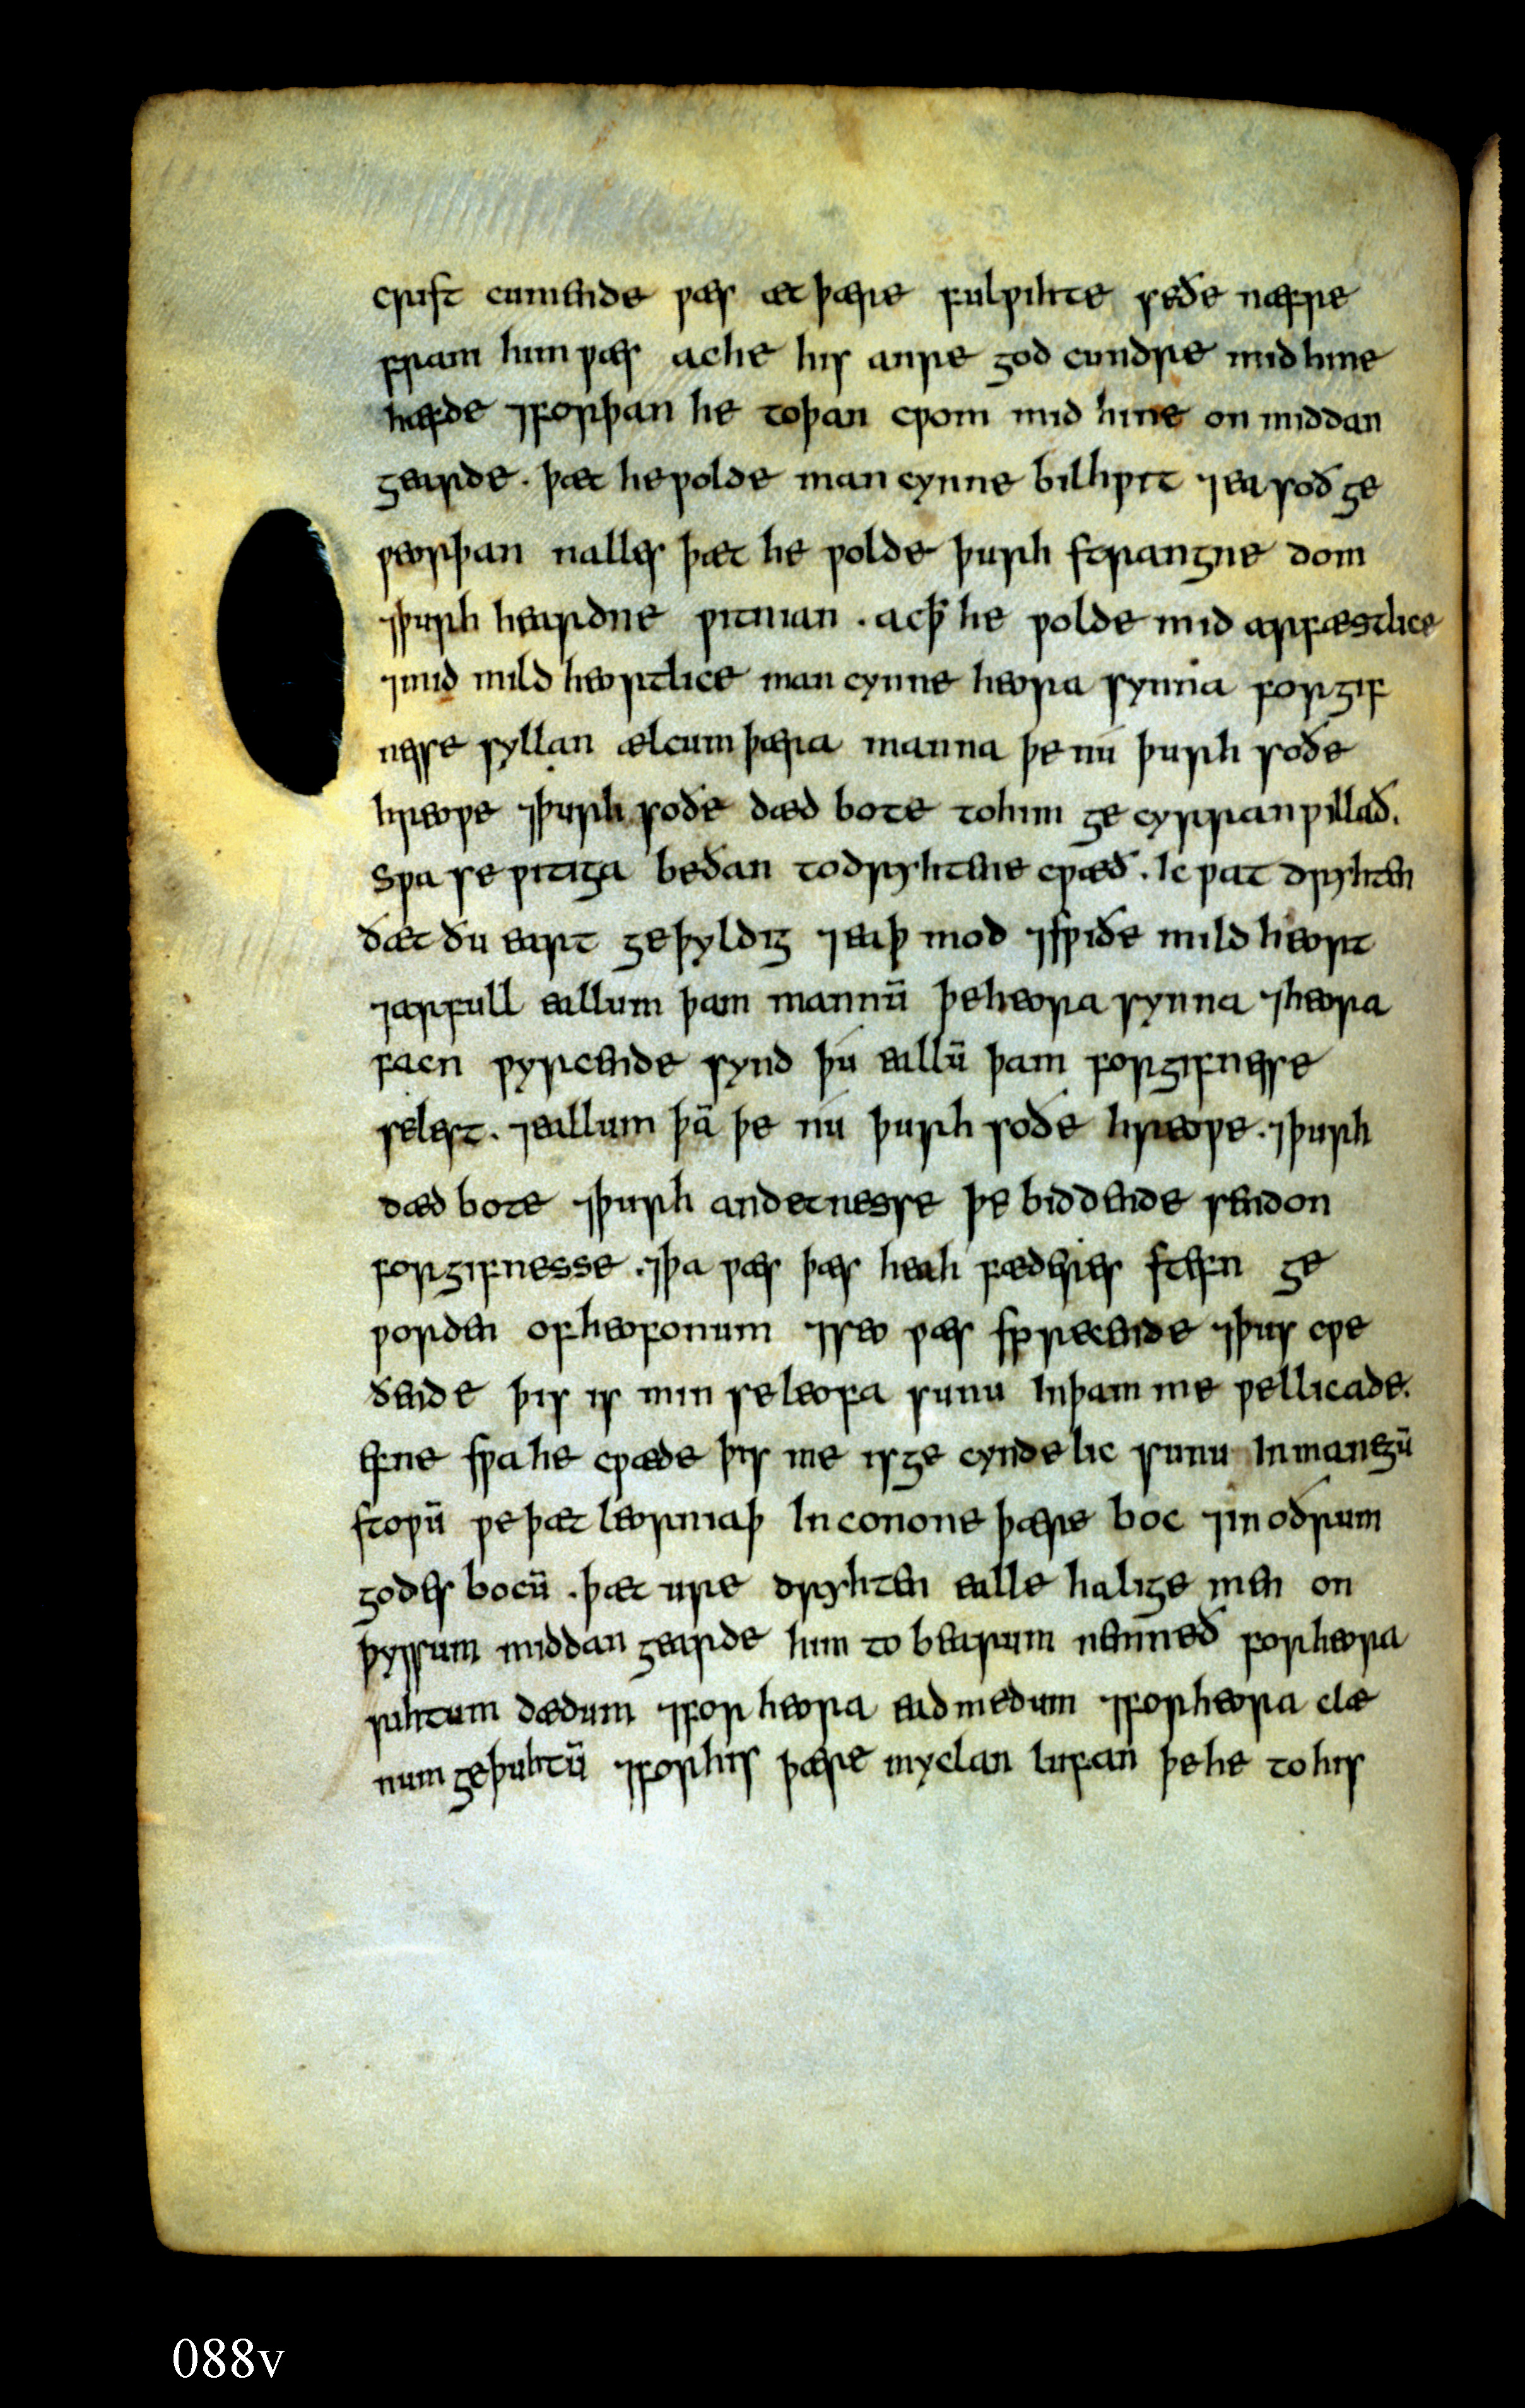 crist cumende ƿæs æt þære fulƿihte seðe næfre
fram him ƿæs ac he his anre god cundre mid hine
hæfde ⁊forþan he to þan cƿom mid hine on middan
gearde. þæt he ƿolde man cynne bilhƿit ⁊easoð ge
ƿeorþan nalles þæt he ƿolde þurh strangne dom
⁊þurh heardne ƿitnian. ac ꝥ he ƿolde mid arfæstlice
⁊mid mild heortlice man cynne heora synna forgif
nesse syllan ælcum þæra manna þe nu þurh soðe
hreoƿe ⁊þurh soðe dæd bote to him ge cyrran ƿillað.
Sƿa se ƿitiga beðan to dryhtene cƿæð. Ic ƿat dryhten
ðæt ðu eart geþyldig ⁊eaþ mod ⁊sƿiðe mild heort
⁊arfull eallum þam mannū þe heora synna ⁊heora
facn ƿyrcende synd þu eallū þam forgifnesse
selest. ⁊eallum þā þe nu þurh soðe hreoƿe. ⁊þurh
dæd bote ⁊þurh andetnesse þe biddende sendon
forgifnesse. ⁊þa ƿæs þæs heah fæderes stefn ge
ƿorden of heofonum ⁊seo ƿæs sprecende ⁊þus cƿe
ðende þis is min se leofa sunu In þam me ƿellicade.
Efne sƿa he cƿæde þis me is ge cynde lic sunu In manegū
stoƿū ƿe þæt leorniaþ In conone þære boc ⁊in oðrum
godes bocū. þæt ure dryhten ealle halige men on
þyssum middan gearde him to bearnum nemneð for heora
rihtum dædum ⁊for heora eadmedum ⁊for heora clæ
num geþuhtū ⁊for his þære myclan lufan þe he to his
088v